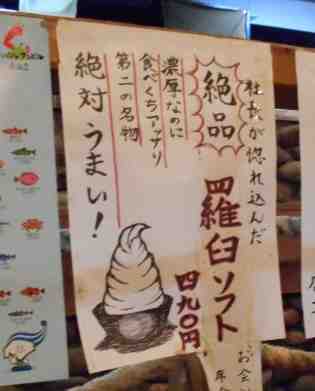 社長が惚れ込んだ
絶品
羅臼ソフト
四九〇円
濃厚なのに
食べくちアッサリ
第二の名物
絶対うまい！